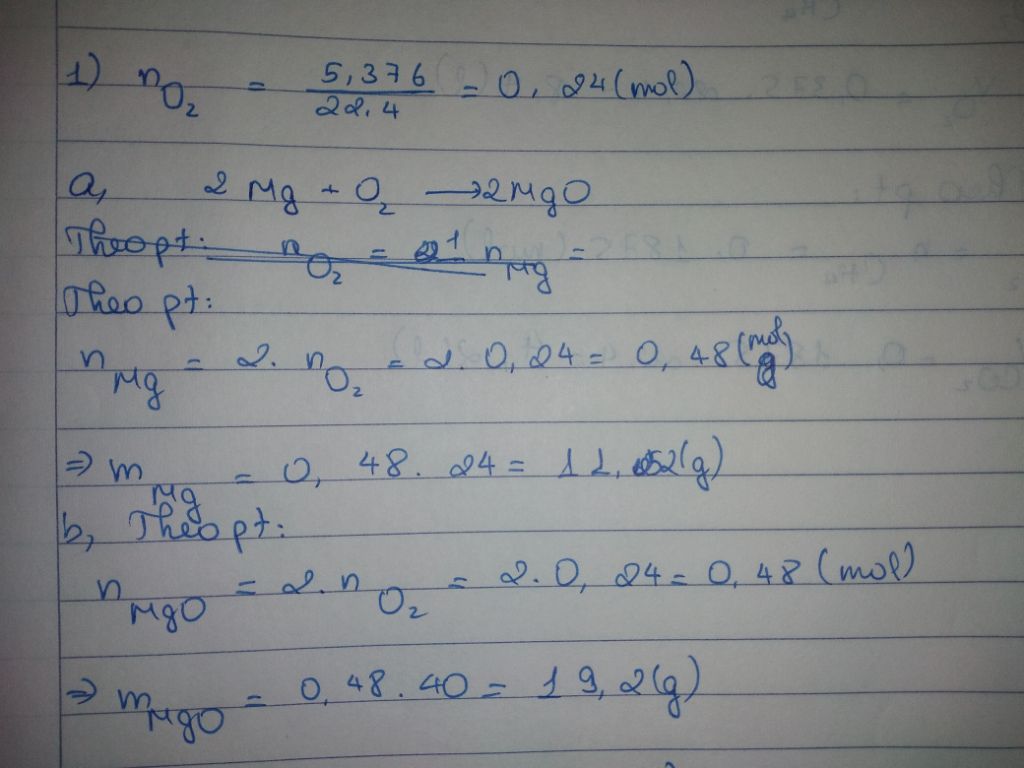 1) nO₂ = 5,376 / 22.4 = 0,24 (mol)
a, 2 Mg + O₂ → 2MgO
Theo pt: nO₂ = 1 nMg =
Theo pt:
nMg = 2. nO₂ = 2. 0,24 = 0,48 (mol)
⇒ mMg = 0,48. 24 = 11,52(g)
b, Theo pt:
nMgO = 2. nO₂ = 2. 0,24 = 0,48 (mol)
⇒ mMgO = 0,48. 40 = 19,2(g)